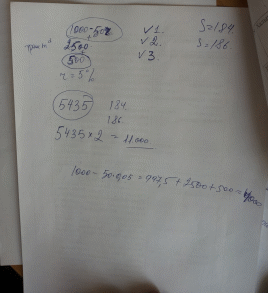 1000-50% √1. S=184.
2500 √2. S=186
+ 500 √3
r=5%
5435 184.
186.
5435×2 = 11000
1000 - = 947,5 + 2500 + 500 =